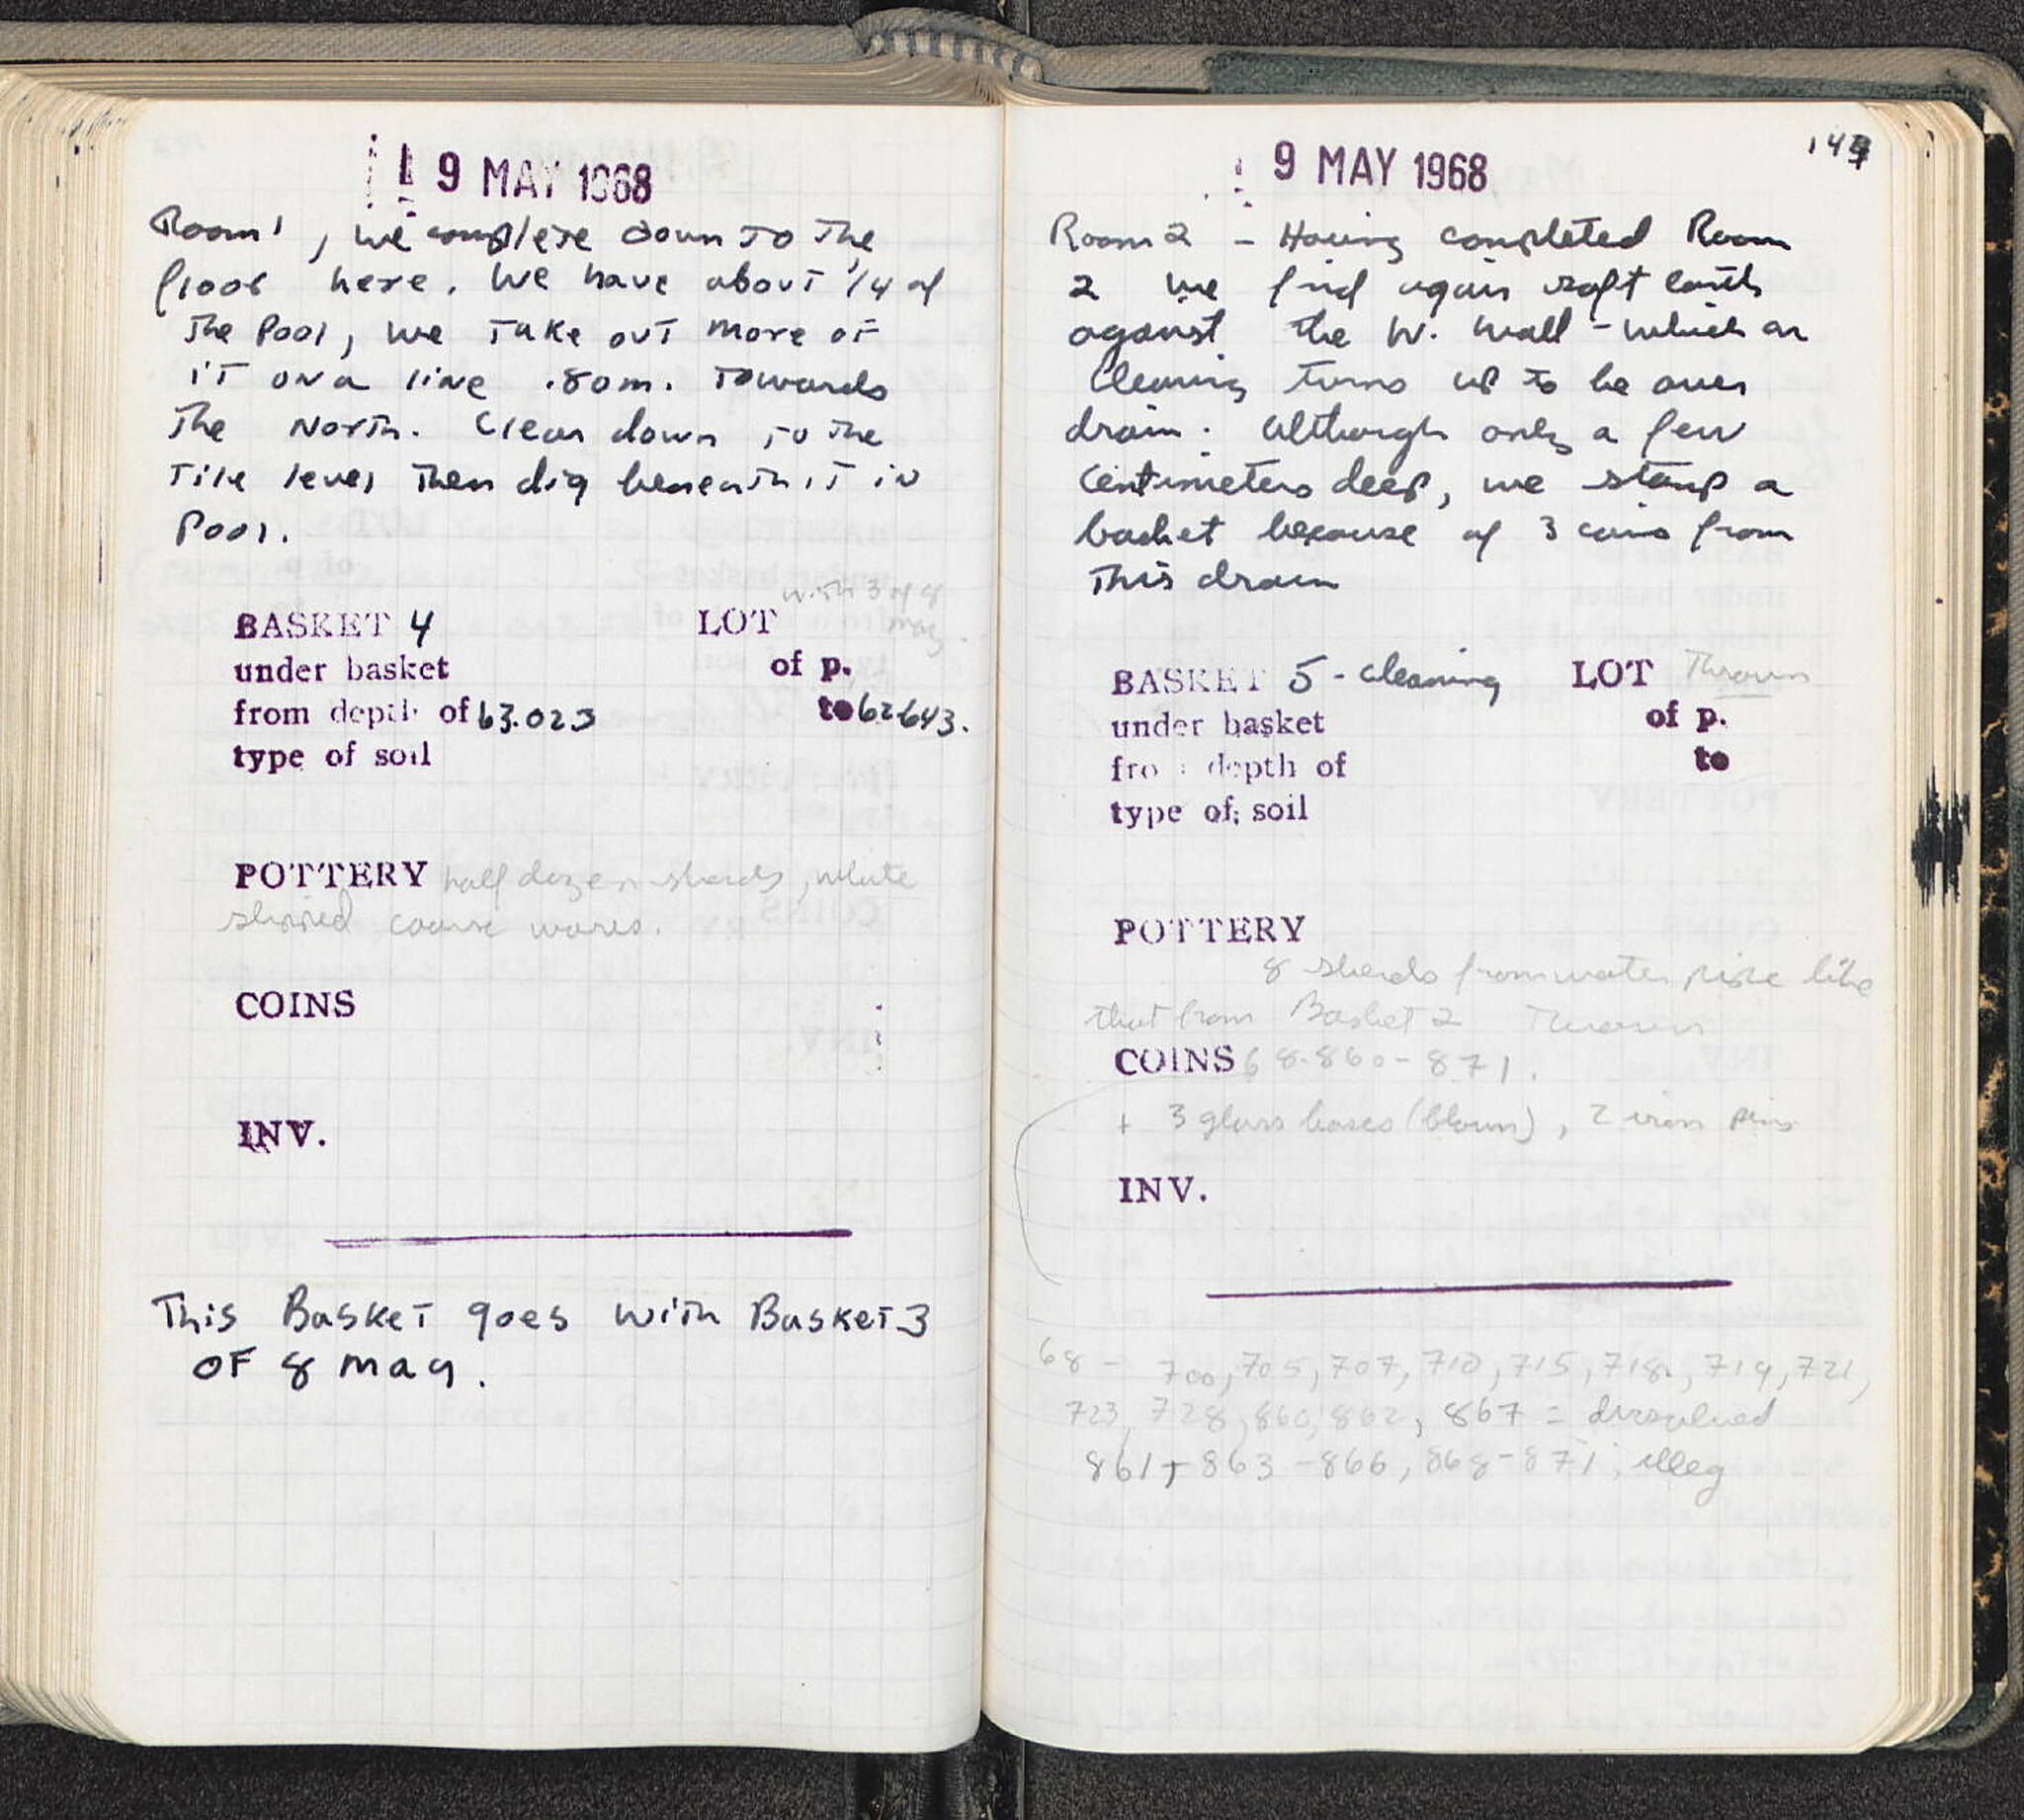 9 MAY 1968
Room 1, we complete down to the
floor here. We have about 1/4 of
The Pool, we Take out more of
iT on a line .80m. Towards
The North. Clean down to the
Tile level Then dig beneath iT in
Pool.
with 3 of 8
BASKET 4 LOT may.
under basket of p.
from depth of 63.023 to 62.643.
type of soil
POTTERY half dozen sherds, white
slipped coarse wares.
COINS
INV.
This Basket goes with Basket 3
OF 8 may.
9 MAY 1968
Room 2 - Having completed Room
2 we find again soft earth
against the W. Wall - which on
Cleaning turns up to be over
drain. Although only a few
centimeters deep, we stamp a
basket because of 3 coins from
This drain
BASKET 5 - cleaning LOT Thrown
under basket of p.
from depth of to
type of soil
POTTERY
8 sherds from water pipe like
that from Basket 2 Thrown
COINS 68-860-871.
+ 3 glass bases (blown), 2 iron pins
INV.
68- 700, 705, 707, 710, 715, 718, 719, 721,
723, 728, 860, 862, 867 = dissolved
861, 863-866, 868-871, illeg